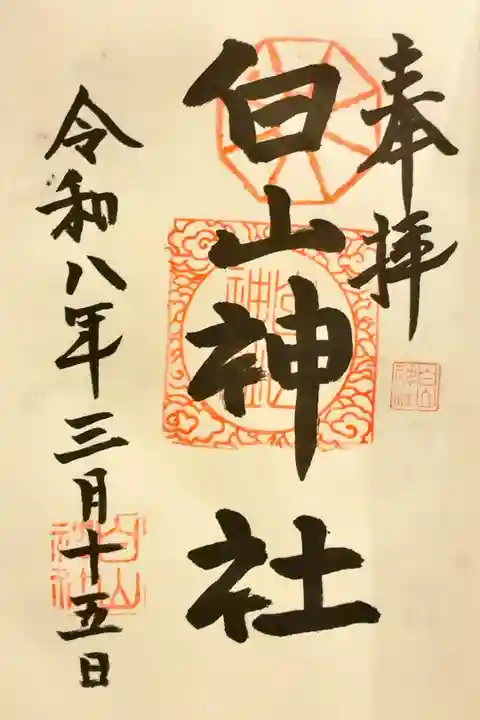 奉拝
白山神社
令和八年三月十五日
白山
神社
白山
神社